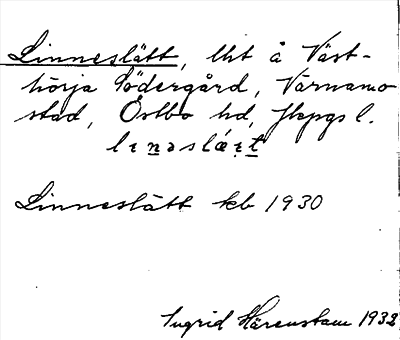 Linneslätt, lht å Väst-
hörja Södergård, Värnamo
stad, Östbo hd, Jkpgs l.
Linneslätt kb 1930
Ingrid Härenstam 1932